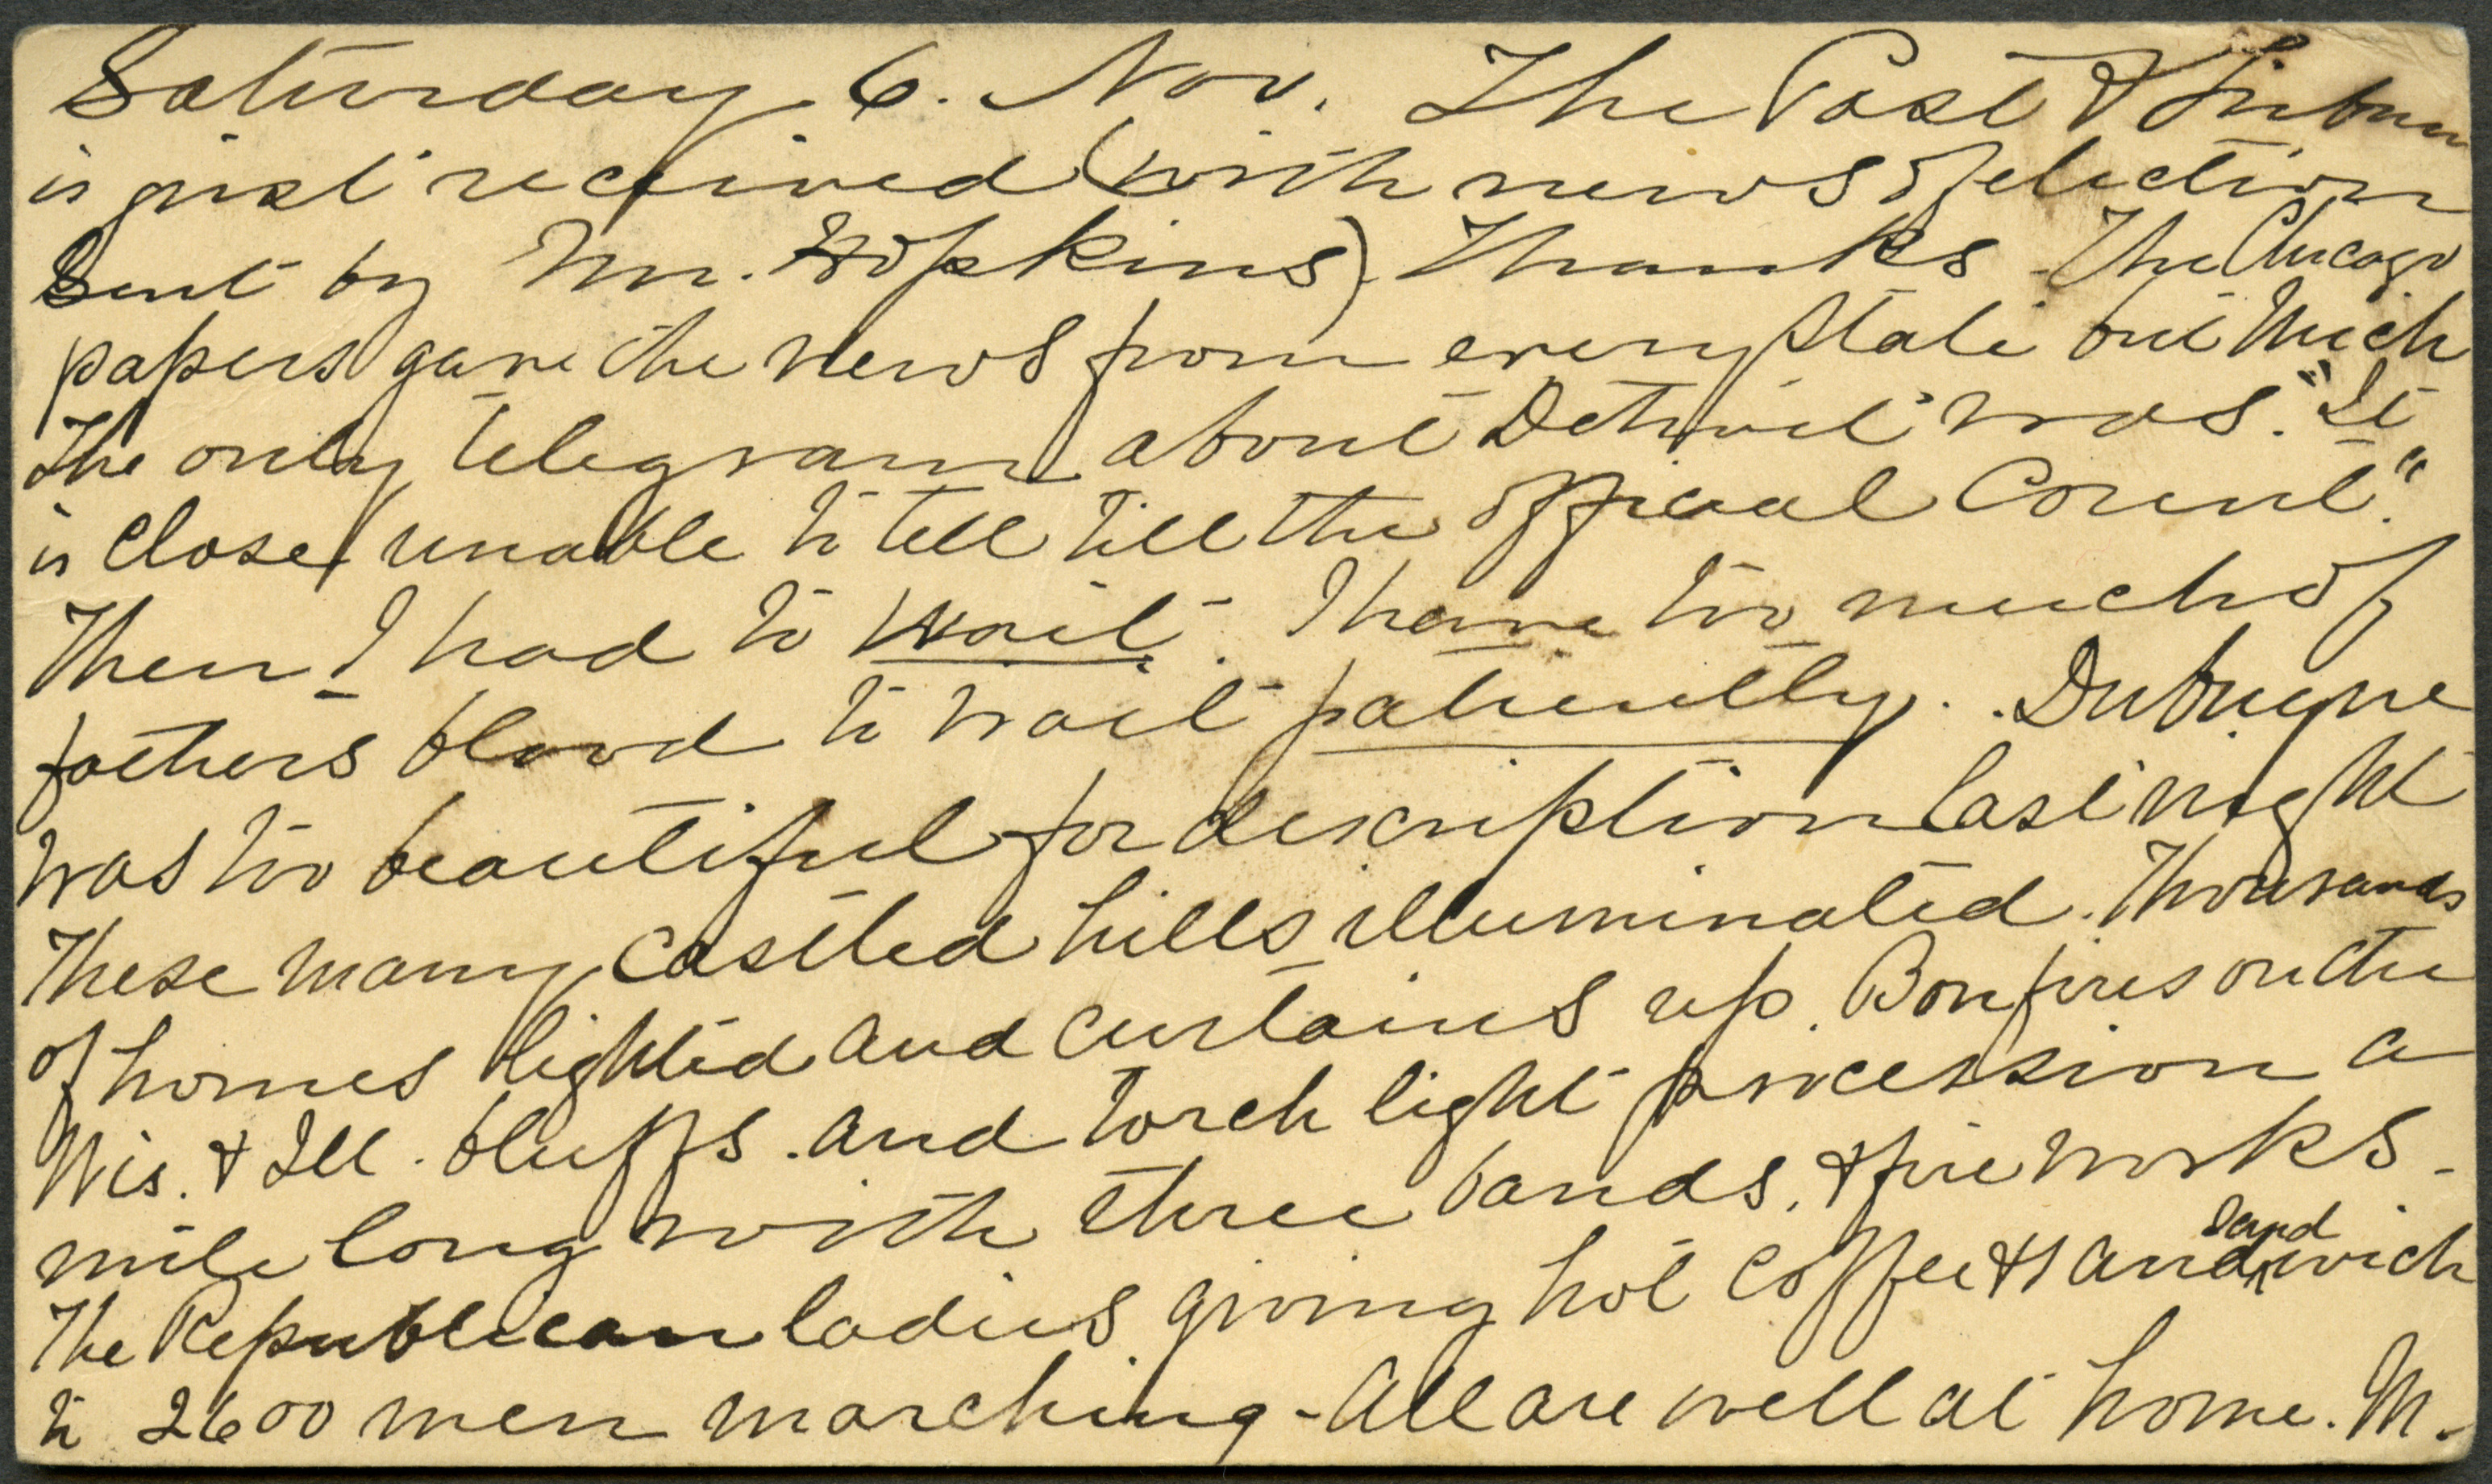 Saturday 6. Nov. The Post & Tribune
is just received (with news of election
Sent by Mr. Hopkins) Thanks - The Chicago
papers gave the news from every state but Mich
The only telegram about Detroit was. "It
is Close unable to tell till the official Count."
Then I had to wait. I have too much of
fathers blood to wait patiently. . Dubuque
was too beautiful for description last night
These many castled hills illuminated. Thousands
of homes lighted and curtains up. Bonfires on the
Wis. & Ill. bluffs. and torch light procession a
mile long with three bands, & fire works -
The Republican ladies giving hot coffee & sandwich
to 2600 men marching - All are well at home. M.